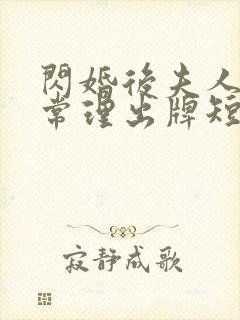 閃婚後夫人
常理出牌短
寂靜成歌